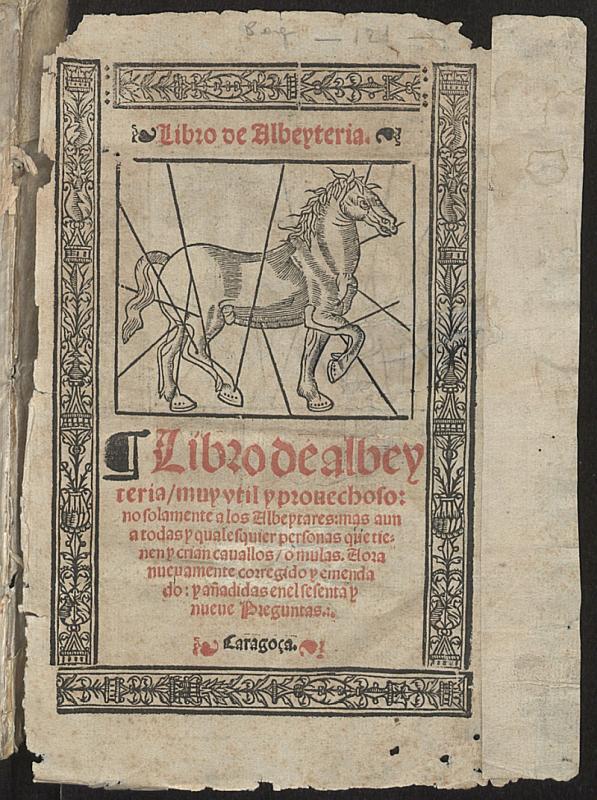 Libro de Albeyteria.
¶ Libro de albey
teria/muy vtil y prouechoso:
no solamente a los Albeytares: mas aun
a todas y qualesquier personas que tie-
nen y crian cauallos/o mulas. Aora
nueuamente corregido y emenda
do: y añadidas enel sesenta y
nueue Preguntas.:.
Caragoça.